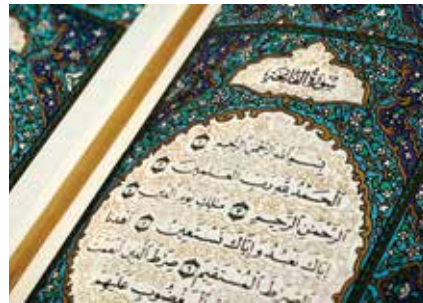 سُورَةُ الْفَاتِحَةِ
بِسْمِ اللَّهِ الرَّحْمَٰنِ الرَّحِيمِ
الْحَمْدُ لِلَّهِ رَبِّ الْعَالَمِينَ
الرَّحْمَٰنِ الرَّحِيمِ مَالِكِ يَوْمِ الدِّينِ
إِيَّاكَ نَعْبُدُ وَإِيَّاكَ نَسْتَعِينُ اهْدِنَا
الصِّرَاطَ الْمُسْتَقِيمَ صِرَاطَ الَّذِينَ أَنْعَمْتَ
الْمَغْضُوبِ عَلَيْهِمْ